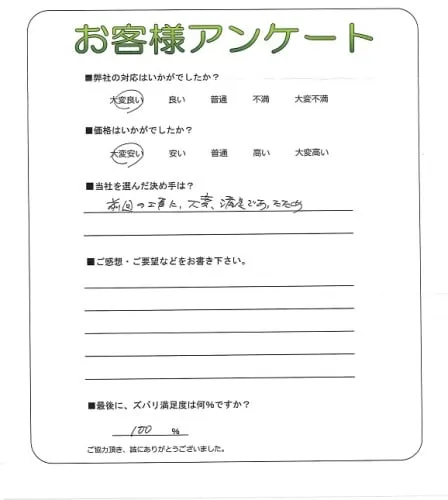 お客様アンケート
■弊社の対応はいかがでしたか？
大変良い 良い 普通 不満 大変不満
■価格はいかがでしたか？
大変安い 安い 普通 高い 大変高い
■当社を選んだ決め手は？
前回の工事が、大変、満足であったため
■ご感想・ご要望などをお書き下さい。
■最後に、ズバリ満足度は何%ですか？
100 %
ご協力頂き、誠にありがとうございました。